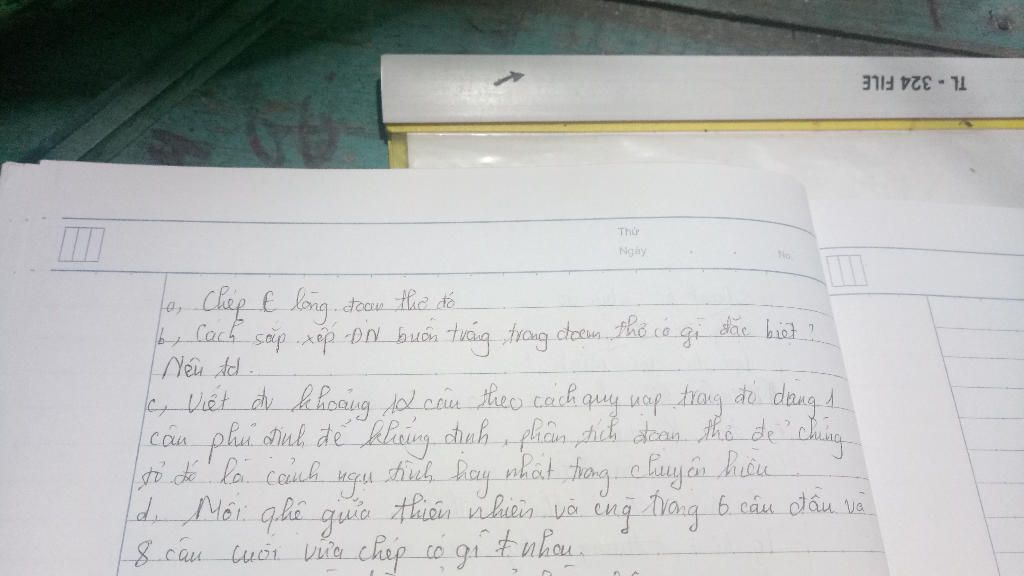 TL - 324 FILE
Thứ
Ngày
No.
a, Chép € lòng đoạn thơ đó
b, Cách sắp xếp ĐN buồn trông trong đoạn thơ có gì đặc biệt?
Nêu td.
c, Viết đv khoảng 12 câu theo cách quy nạp trong đó dùng 1
câu phủ định để khẳng định, phân tích đoạn thơ để chứng
tỏ đó là cảnh ngụ tình hay nhất trong chuyện Kiều
d, Mối qhệ giữa thiên nhiên và cng trong 6 câu đầu và
8 câu cuối vừa chép có gì ≠ nhau.